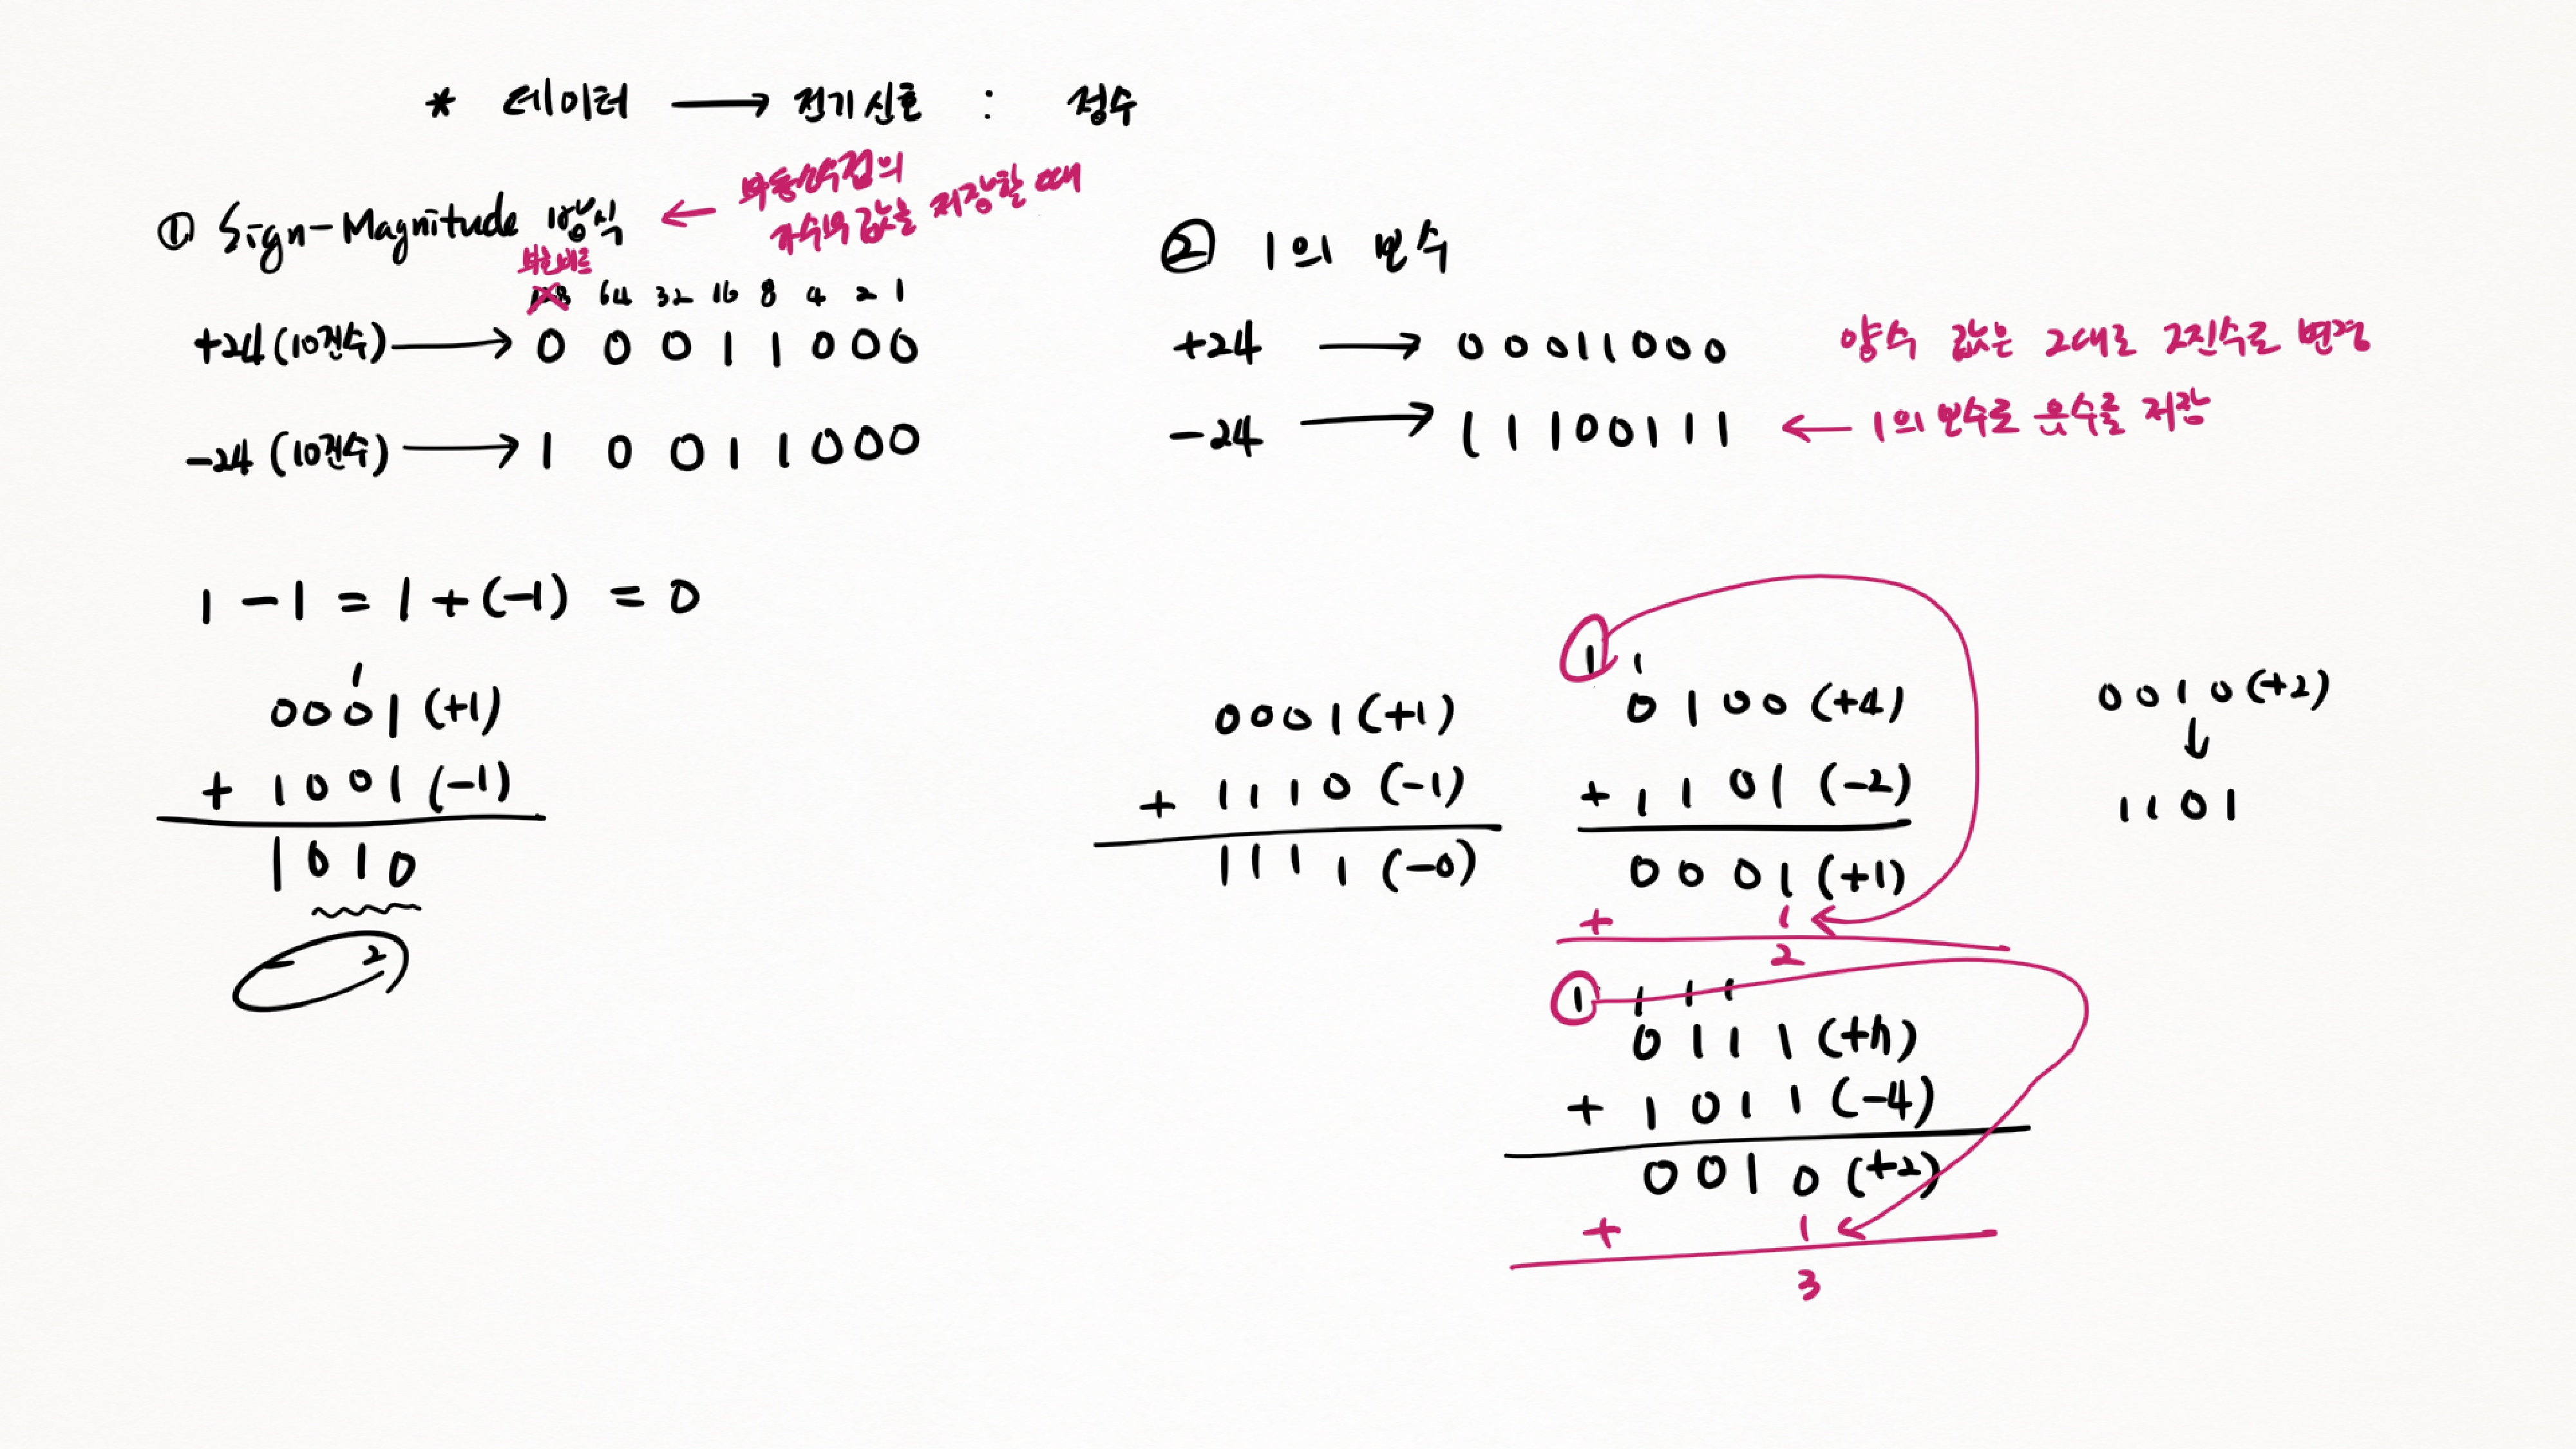 * 데이터 → 전기신호 : 정수
① Sign-Magnitude 방식 ← 부동소수점의
가수의 값을 저장할 때
부호비트
128 64 32 16 8 4 2 1
+24(10진수) → 0 0 0 1 1 0 0 0
-24(10진수) → 1 0 0 1 1 0 0 0
1 - 1 = 1 + (-1) = 0
1
0001(+1)
+ 1001(-1)
1010
- 2
② 1의 보수
+24 → 00011000 양수 값은 그대로 2진수로 변경
-24 → 11100111 ← 1의 보수로 음수를 저장
0001(+1)
+ 1110(-1)
1111(-0)
1 1
0100(+4)
+ 1101(-2)
0001(+1)
+ 1
2
1 1 1 1
0111(+7)
+ 1011(-4)
0010(+2)
+ 1
3
0010(+2)
↓
1101